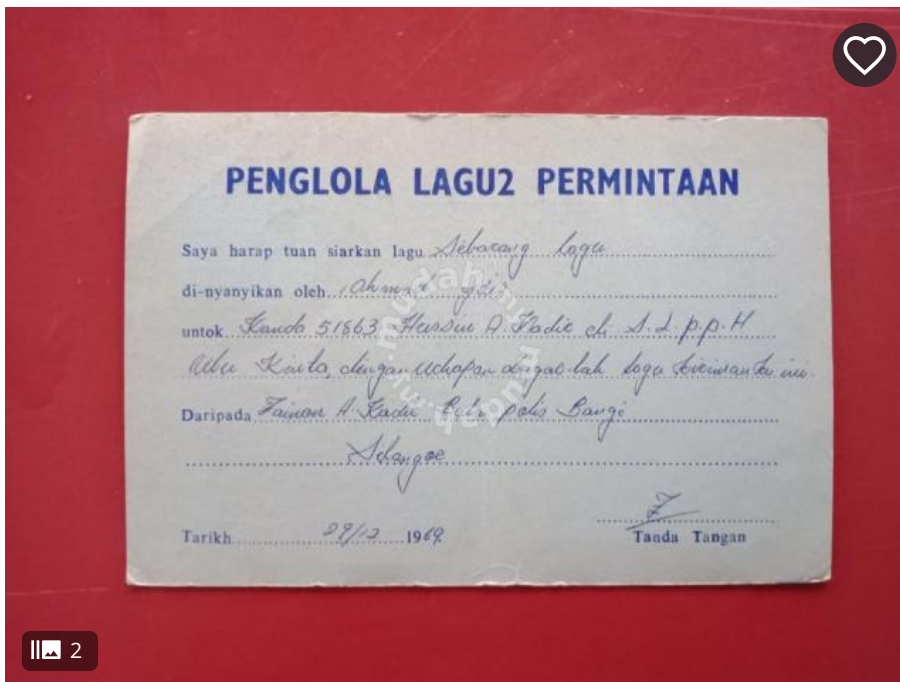 PENGLOLA LAGU2 PERMINTAAN
Saya harap tuan siarkan lagu Sebarang lagu
di-nyanyikan oleh Ahmad
untok Kanda 51863 Hussin A. Kadir S.L.p.p.H
Ulu Kinta, dengan uchapan dengar-lah lagu kirimanku ini.
Daripada Zainon A. Kadir Balai polis Bangi
Selangor
Tarikh 29/12 1969
Tanda Tangan
mudah.my
2